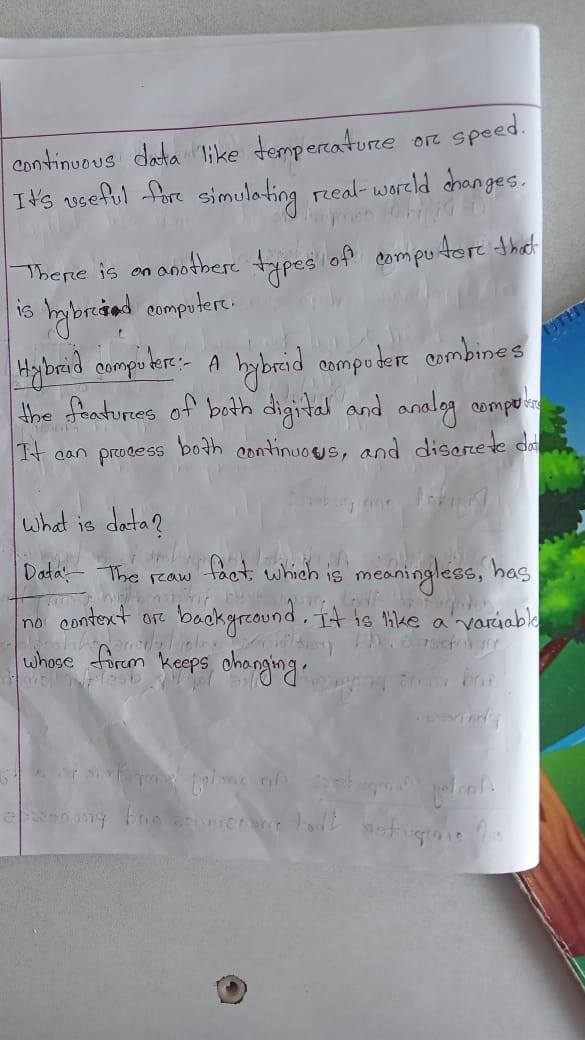 continuous data like temperature or speed.
It's useful for simulating real-world changes.
There is an another types of computer that
is hybrid computer.
Hybrid computer:- A hybrid computer combines
the features of both digital and analog computers
It can process both continuous, and discrete dat
What is data?
Data:- The raw fact, which is meaningless, has
no context or background. It is like a variable
whose form keeps changing.